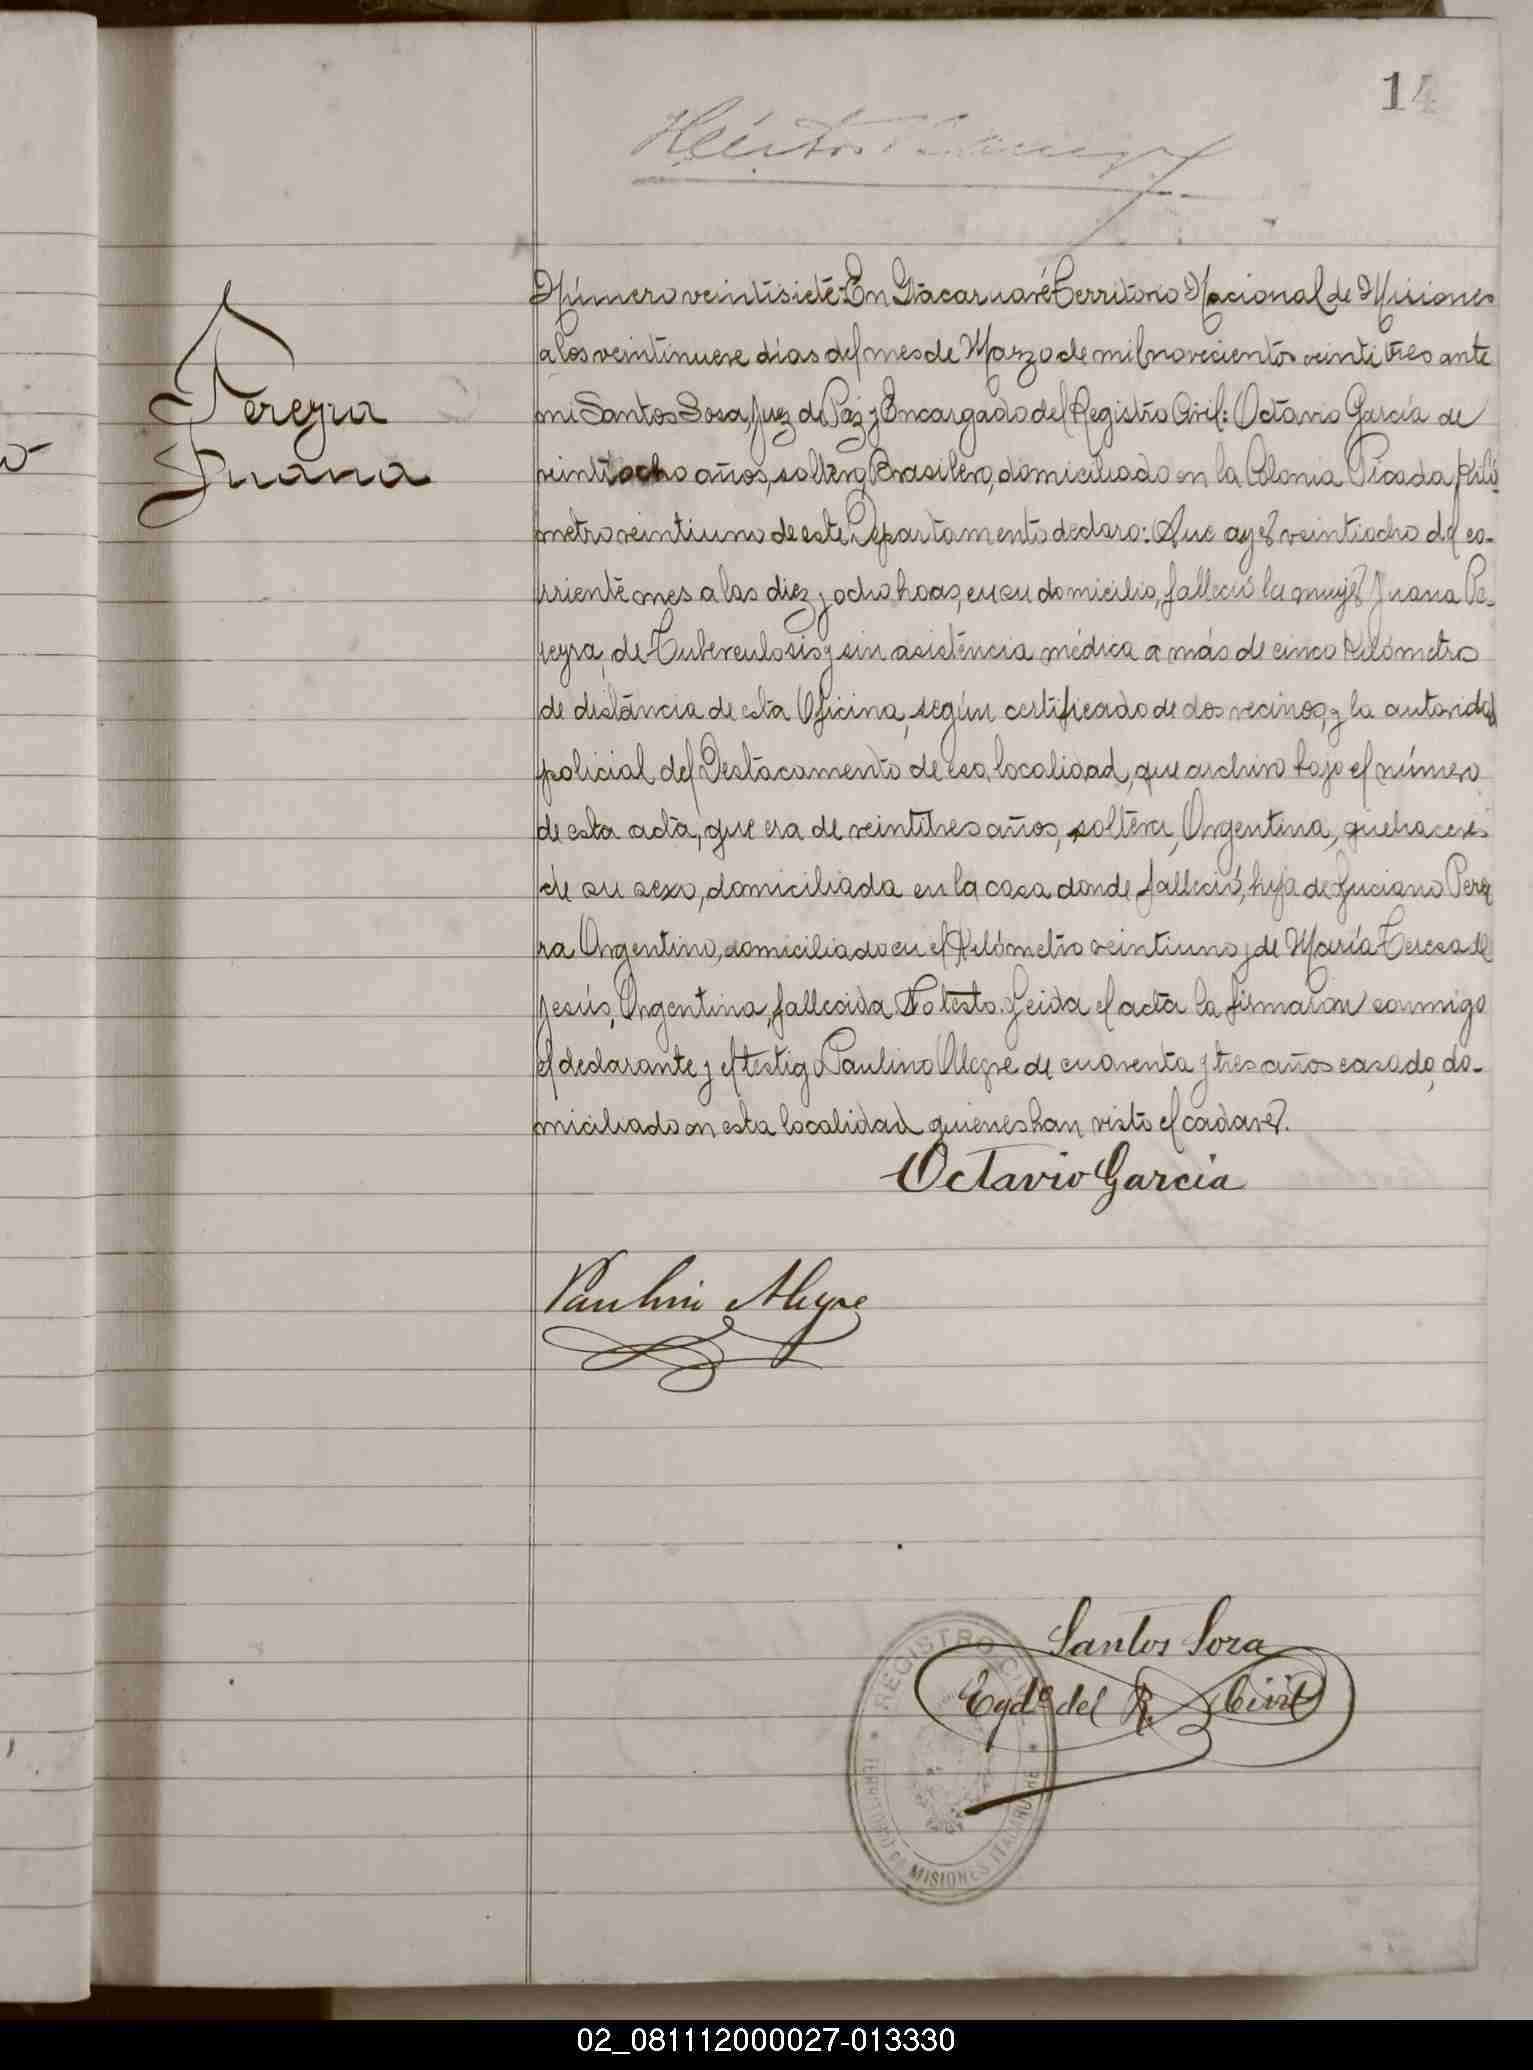 14
Pereyra
Juana
Número veintisiete: En Itacaruaré Territorio Nacional de Misiones
a los veintinueve días del mes de Marzo de mil novecientos veintitres ante
mi Santos Sosa, Juez de Paz y Encargado del Registro Civil: Octavio García de
veintiocho años, soltero, Brasilero, domiciliado en la Colonia Picada, Kiló
metro veintiuno de este Departamento declaro: Que ayer veintiocho del co-
rriente mes a las diez y ocho hoas, en su domicilio, falleció la mujer Juana Pe-
reyra, de Tuberculosis y sin asistencia médica a más de cinco Kilómetro
de distancia de esta Oficina, según certificado de dos vecinos, y la autoridad
policial del Destacamento de esa localidad, que archivo bajo el número
de esta acta, que era de veintitres años, soltera, Argentina, quehaceres
de su sexo, domiciliada en la casa donde falleció, hija de Luciano Perey
ra Argentino, domiciliado en el Kilómetro veintiuno y de María Teresa de
Jesús, Argentina, fallecida. No testo. Leida el acta la firmaron conmigo
el declarante y el testigo Paulino Alegre de cuarenta y tres años casado, do-
miciliado en esta localidad quienes han visto el cadaver.
Octavio Garcia
Paulino Alegre
Santos Sosa
Egdo del R. Civil
REGISTRO CIVIL
TERRITORIO DE MISIONES ITACARUARE
02_081112000027-013330